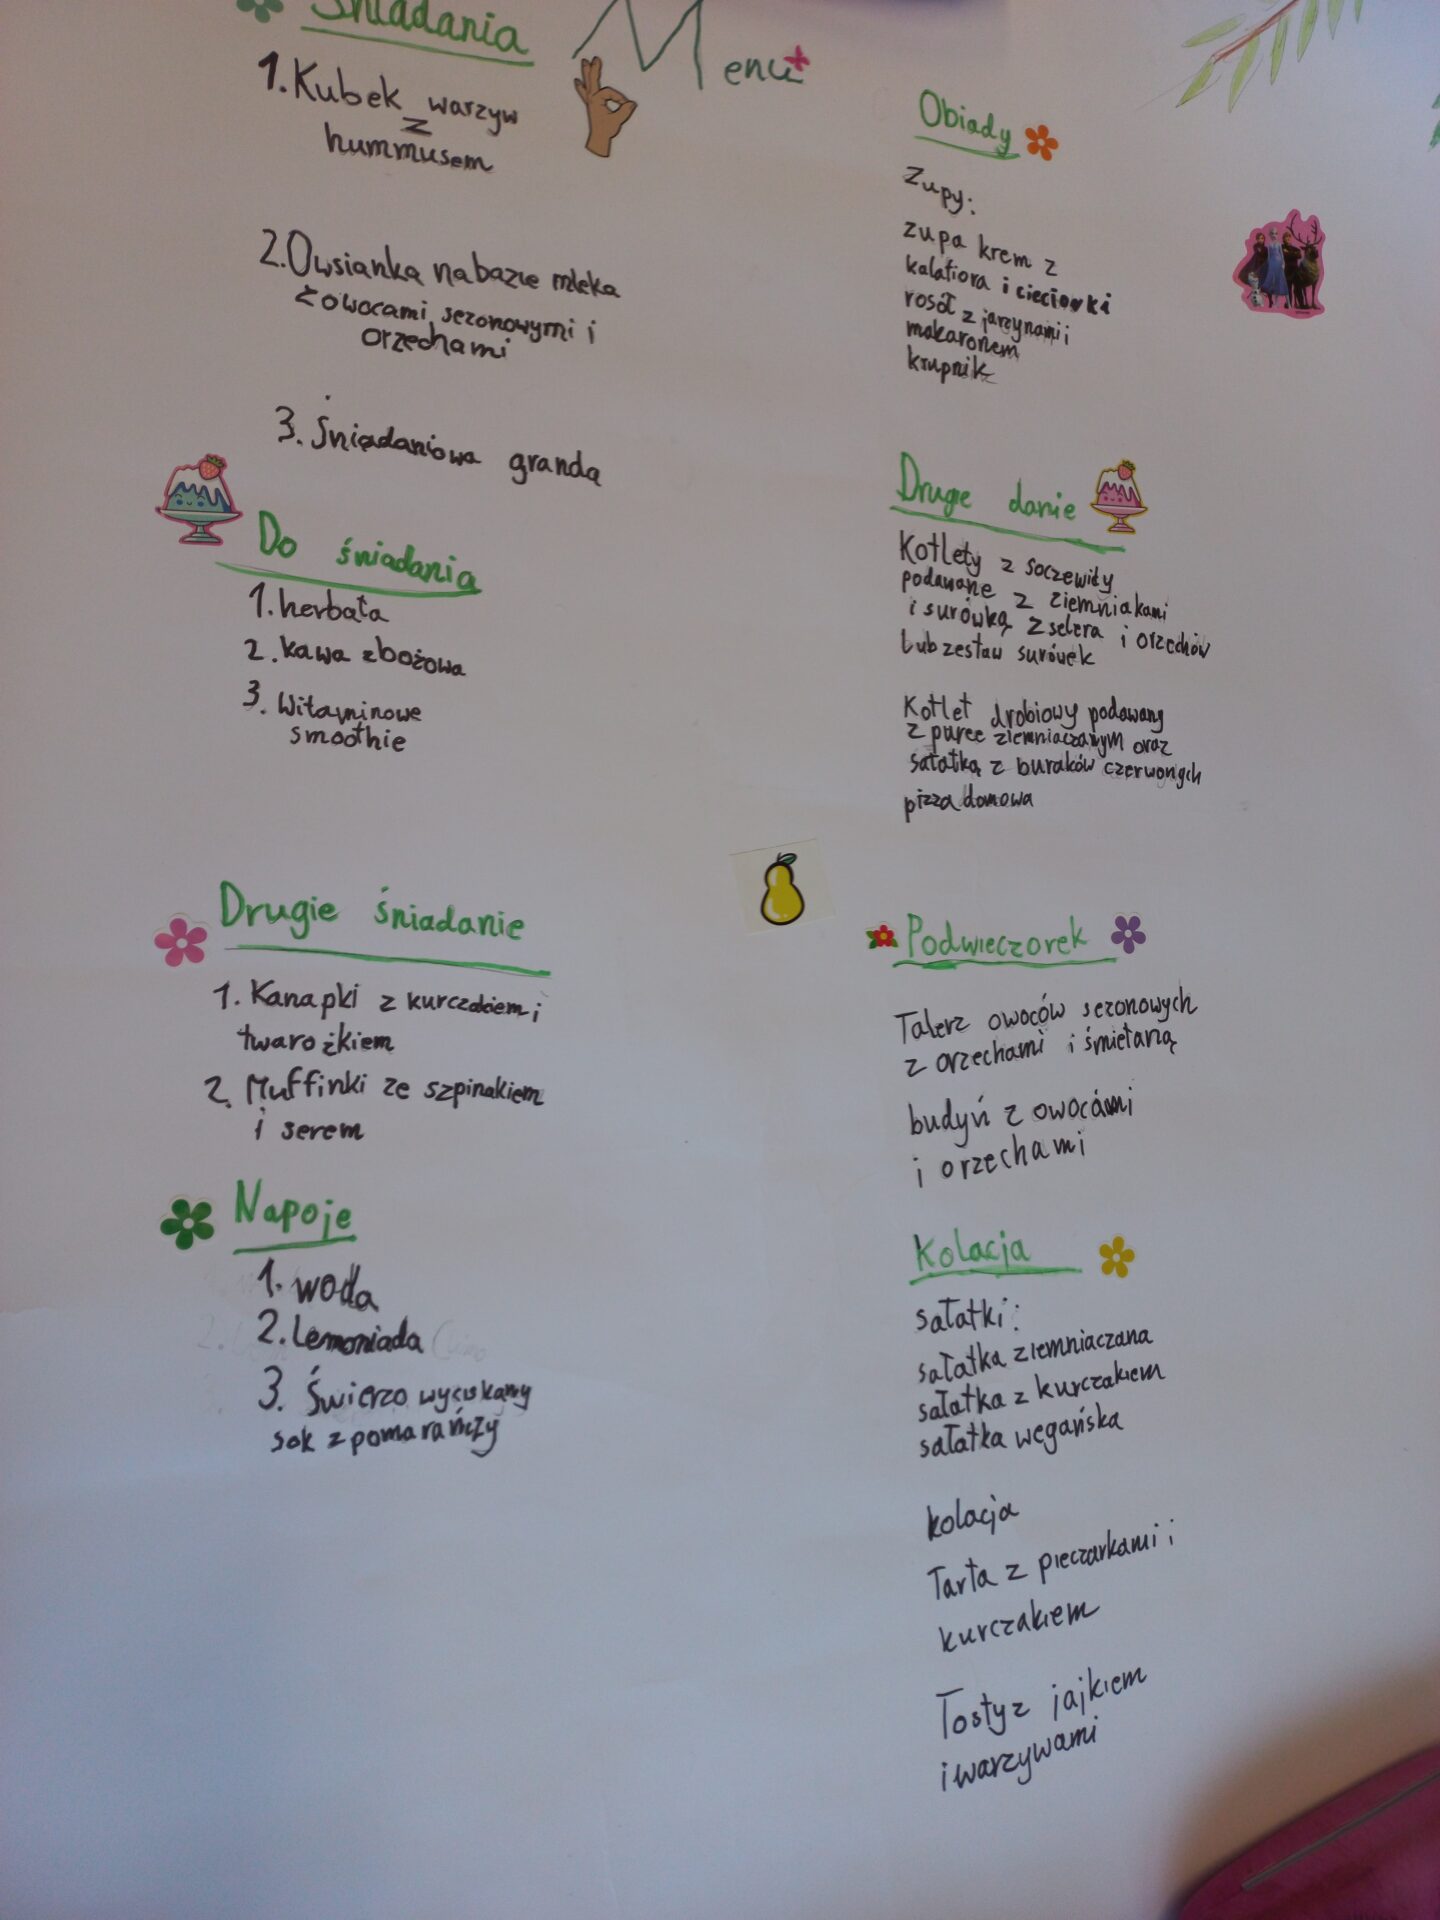 Menu
Śniadania
1. Kubek warzyw
z
hummusem
2. Owsianka na bazie mleka
z owocami sezonowymi i
orzechami
3. Śniadaniowa granda
Do śniadania
1. herbata
2. kawa zbożowa
3. Witaminowe
smoothie
Drugie śniadanie
1. Kanapki z kurczakiem i
twarożkiem
2. Muffinki ze szpinakiem
i serem
Napoje
1. woda
2. Lemoniada
3. Świerzo wyciskany
sok z pomarańczy
Obiady
Zupy:
zupa krem z
kalafiora i cieciorki
rosół z jarzynami i
makaronem
krupnik
Drugie danie
Kotlety z soczewity
podawane z ziemniakami
i surówką z selera i orzechów
lub zestaw surówek
Kotlet drobiowy podawany
z puree ziemniaczanym oraz
sałatką z buraków czerwonych
pizza domowa
Podwieczorek
Talerz owoców sezonowych
z orzechami i śmietaną
budyń z owocami
i orzechami
Kolacja
sałatki:
sałatka ziemniaczana
sałatka z kurczakiem
sałatka wegańska
kolacja
Tarta z pieczarkami i
kurczakiem
Tosty z jajkiem
i warzywami